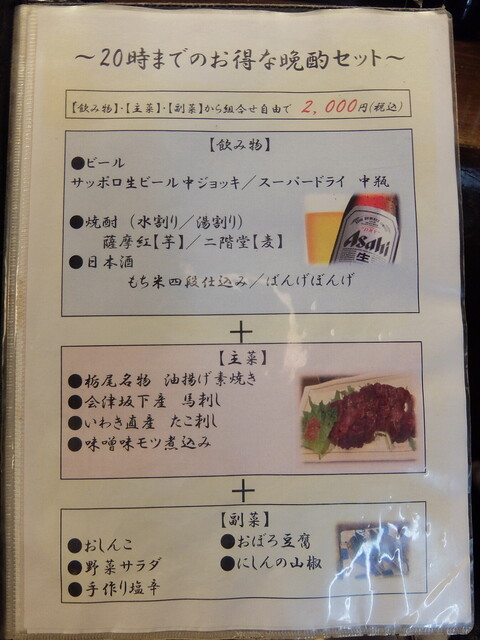 ～20時までのお得な晩酌セット～
【飲み物】・【主菜】・【副菜】から組合せ自由で 2,000円(税込)
【飲み物】
●ビール
サッポロ生ビール中ジョッキ／スーパードライ 中瓶
●焼酎（水割り／湯割り）
薩摩紅【芋】／二階堂【麦】
●日本酒
もち米四段仕込み／ばんげぼんげ
Asahi
生
＋
【主菜】
●栃尾名物 油揚げ素焼き
●会津坂下産 馬刺し
●いわき直産 たこ刺し
●味噌味モツ煮込み
＋
【副菜】
●おしんこ
●野菜サラダ
●手作り塩辛
●おぼろ豆腐
●にしんの山椒